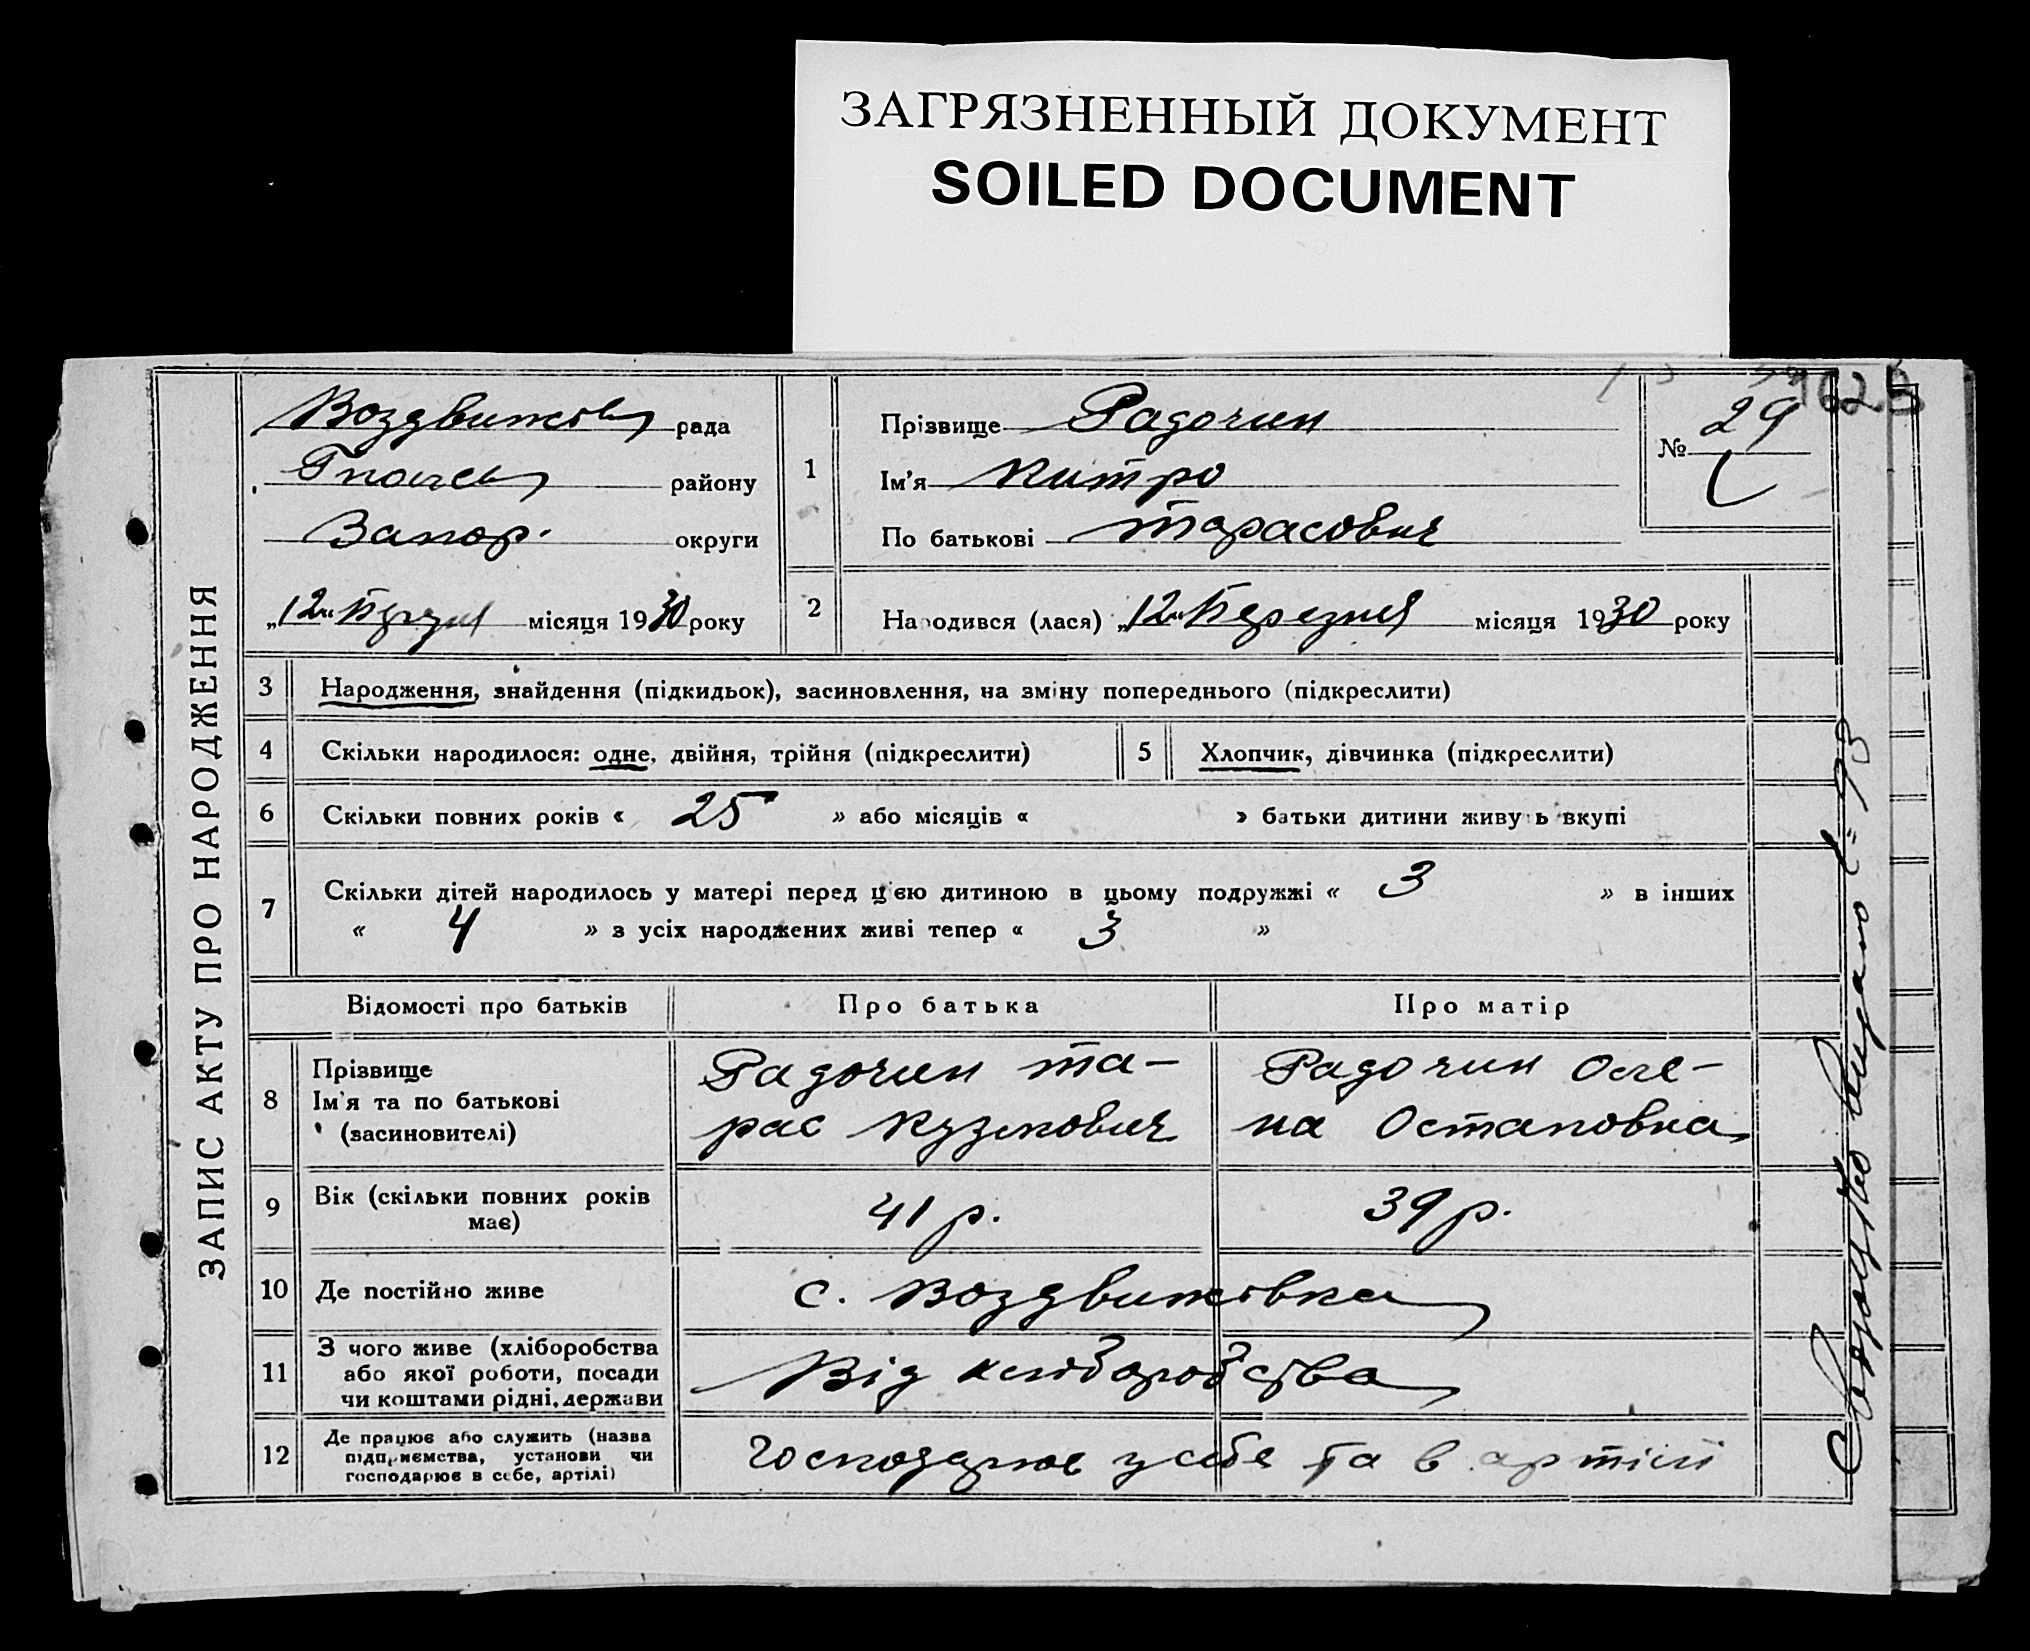 ЗАГРЯЗНЕННЫЙ ДОКУМЕНТ
SOILED DOCUMENT
ЗАПИС АКТУ ПРО НАРОДЖЕННЯ
Воздвижівс рада
району
Запор. округи
„12“ Березня місяця 1930 року
1
Прізвище Радочин
Ім'я Митро
По батькові Тарасович
№ 29
2
Народився (лася) „12“ Березня місяця 1930 року
3 Народження, знайдення (підкидьок), засиновлення, на зміну попереднього (підкреслити)
4 Скільки народилося: одне, двійня, трійня (підкреслити)
5 Хлопчик, дівчинка (підкреслити)
6 Скільки повних років « 25 » або місяців « » батьки дитини живуть вкупі
7 Скільки дітей народилось у матері перед цією дитиною в цьому подружжі « 3 » в інших
« 4 » з усіх народжених живі тепер « 3 »
Відомості про батьків Про батька Про матір
8 Прізвище
Ім'я та по батькові
(засиновителі)
Радочин Та-
рас Кузмович
Радочин Оле-
на Остаповна
9 Вік (скільки повних років
має)
41 р. 39 р.
10 Де постійно живе с. Воздвижівка
11 З чого живе (хліборобства
або якої роботи, посади
чи коштами рідні, держави
Від хліборобства
12 Де працює або служить (назва
підприємства, установи чи
господарює в себе, артілі)
Господарює у себе та в артілі